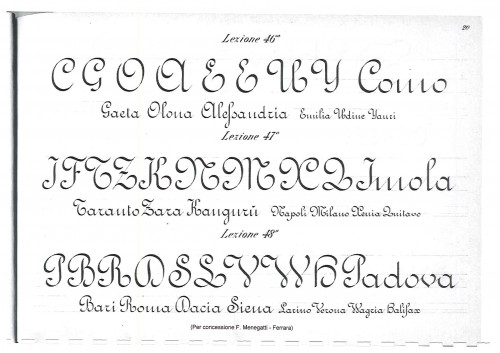 20
Lezione 46ª
C G O A E E U Y Como
Gaeta Olona Aleſsandria Emilia Udine Yauri
Lezione 47ª
I F T Z K N M X Q Imola
Taranto Zara Kangurù Napoli Milano Xenia Quitave
Lezione 48ª
P B R D S L V W H Padova
Bari Roma Dacia Siena Larino Verona Wagria Halifax
(Per concessione F. Menegatti - Ferrara)